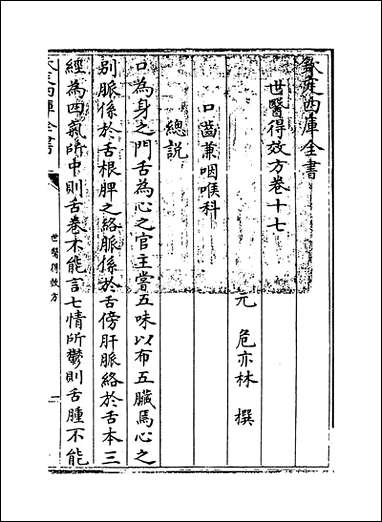 欽定四庫全書
世醫得效方卷十七
元 危亦林 撰
口齒兼咽喉科
總説
口為身之門舌為心之官主嘗五味以布五臟焉心之
别脈係於舌根脾之絡脈係於舌傍肝脈絡於舌本三
經為四氣所中則舌卷不能言七情所鬱則舌腫不能
世醫得效方
一